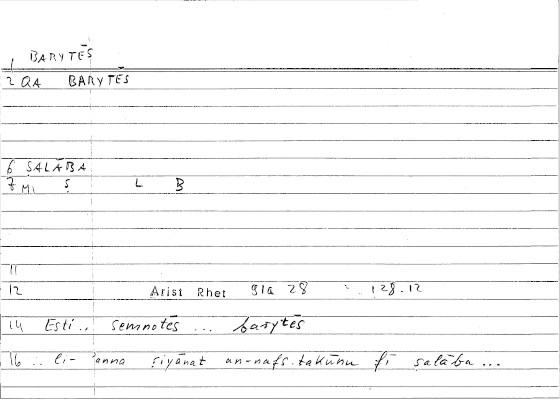 1 BARYTĒS
2 QA BARYTĒS
6 ṢALĀBA
7 MI Ṣ L B
11
12 Arist Rhet 91a 28 = 128.12
14 Esti .. semnotēs ... barytēs
16 .. li- ʾanna ṣiyānat an-nafs takūnu fī ṣalāba ...